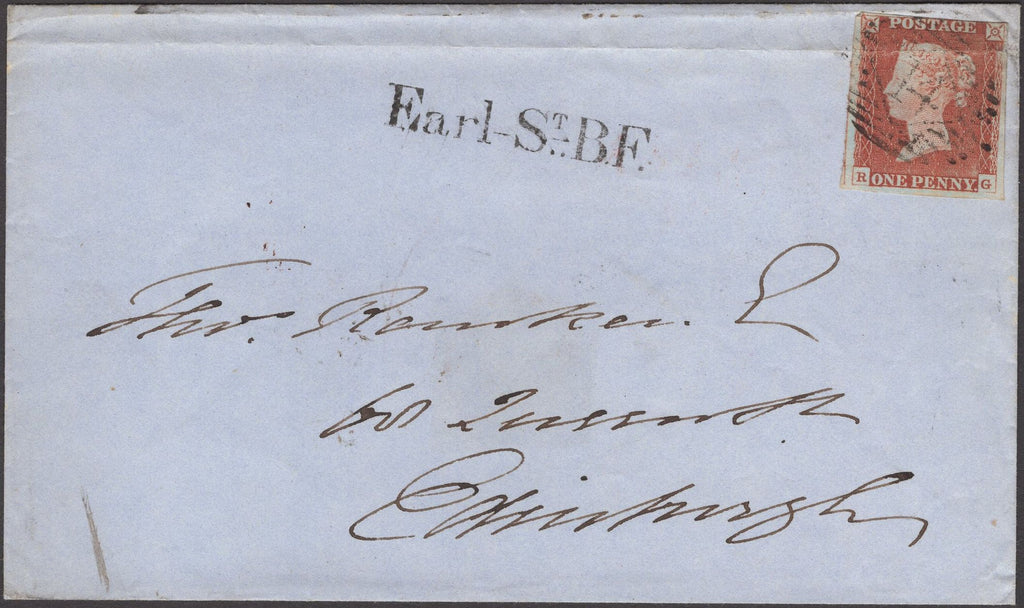 POSTAGE
Earl-St. B.F.
R ONE PENNY G
Thos. Ranken. E
60 Queen St
Edinburgh